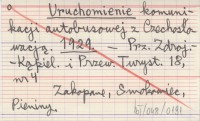 Uruchomienie komuni-
kacji autobusowej z Czechosło-
wacją. 1929. — Prz. Zdroj.-
Kąpiel. i Przew. Turyst. 18,
nr 4
Zakopane, Smokowiec,
Pieniny.